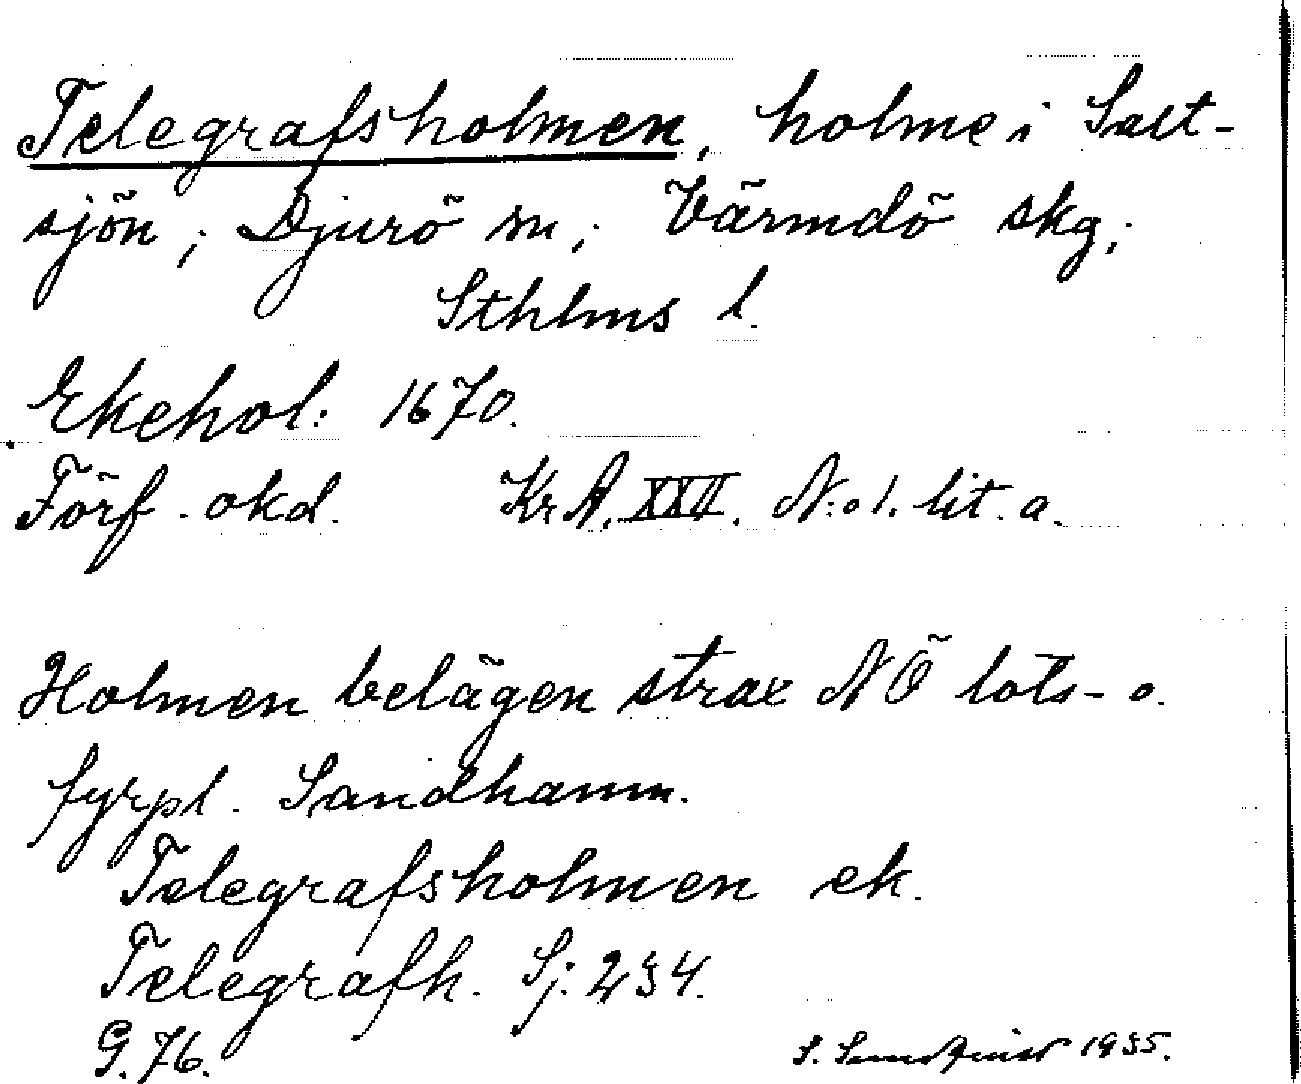 Telegrafsholmen, holme i Salt-
sjön; Djurö sn; Värmdö skg;
Sthlms l.
Ekehol: 1670.
Förf. okd. Kr.A. XXII. N:o 1. lit. a.
Holmen belägen strax NÖ lots- o.
fyrpl. Sandhamn.
Telegrafsholmen ek.
Telegrafh. Sj: 234.
G. 76.
S. 1935.